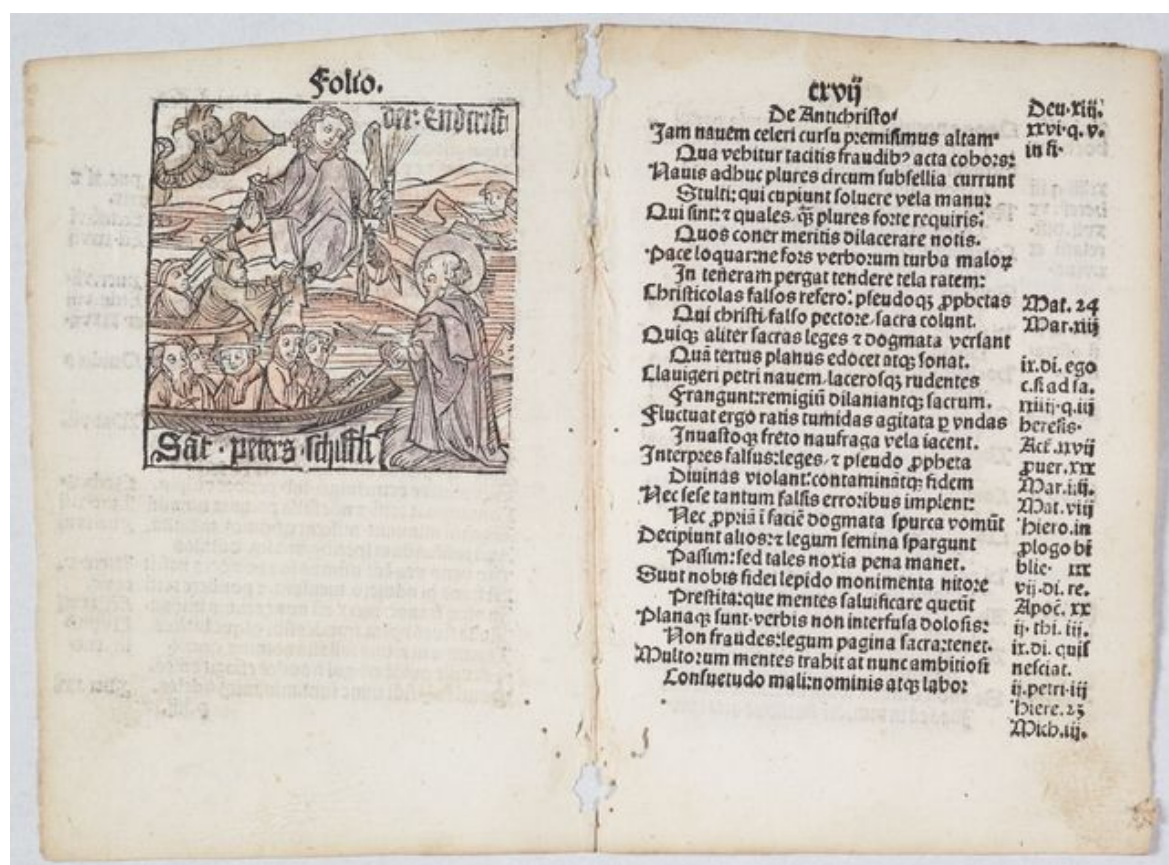 Folio.
der: Endcrist
Sāt · peters · schiffli
cxvij
De Antichristo/
Jam nauem celeri cursu premisimus altam·
Qua vehitur tacitis fraudibꝰ acta cohors:
Nauis adhuc plures circum subsellia currunt
Stulti: qui cupiunt soluere vela manu:
Qui sint: ⁊ quales, q̄ꝫ plures forte requiris:
Quos coner meritis dilacerare notis.
Pace loquar: ne fors verborum turba maloꝝ
In teneram pergat tendere tela ratem:
Christicolas falsos refero: pseudoqꝫ ꝓphetas
Qui christi/ falso pectore/ sacra colunt.
Quiqꝫ aliter sacras leges ⁊ dogmata versant
Quā tertus planus edocet atqꝫ sonat.
Clauigeri petri nauem/ lacerosqꝫ rudentes
Frangunt: remigiū dilaniantqꝫ sacrum.
Fluctuat ergo ratis tumidas agitata ꝑ vndas
Inuastoqꝫ freto naufraga vela iacent.
Interpres falsus: leges/ ⁊ pseudo ꝓpheta
Diuinas violant: contaminātqꝫ fidem
Nec sese tantum falsis erroribus implent:
Nec ꝓpriā ī faciē dogmata spurca vomūt
Decipiunt alios: ⁊ legum semina spargunt
Passim: sed tales noxia pena manet.
Sunt nobis fidei lepido monimenta nitore
Prestita: que mentes saluificare queūt
Planaqꝫ sunt· verbis non interfusa dolosis:
Non fraudes: legum pagina sacra: tenet·
Multorum mentes trahit at nunc ambitiosi
Consuetudo mali: nominis atqꝫ labor
Deu·xiij.
xxvi·q·v.
in fi·
Mat. 24
Mar.xiij
ix.di. ego
c.si ad sa.
xxiiij·q.iij
heresis·
Act.xxvij
ꝓuer.xxx
Mar.iiij.
Mat.viij
Hiero.in
ꝓlogo bi
blie· xxx
vij.di. re.
Apoc̄. xx
ij. thi. iij.
ix.di. quis
nesciat.
ij.petri·iij
Hiere.23
Mich.iij.